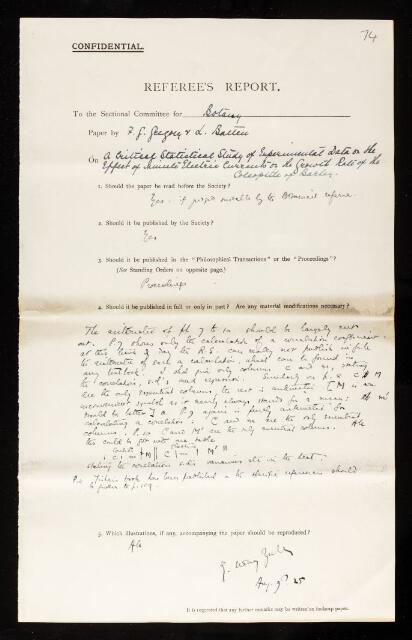 74
CONFIDENTIAL.
REFEREE'S REPORT.
To the Sectional Committee for Botany
Paper by F. G. Gregory & L. Batten
On A Critical Statistical Study of Experimental Data on the
Effect of Minute Electric Currents on the Growth Rate of the
Coleoptile of Barley.
1. Should the paper be read before the Society?
Yes. if judged suitable by the Botanical referee.
2. Should it be published by the Society?
Yes
3. Should it be published in the "Philosophical Transactions" or the "Proceedings"?
(See Standing Orders on opposite page.)
Proceedings
4. Should it be published in full or only in part? Are any material modifications necessary?
The arithmetic of pp. 7 to 10 should be largely cut
out. P. 7 shows only the calculation of a correlation coefficient.
at this time of day the R.S. can really not publish in full
the arithmetic of such a calculation, which can be found in
any textbook. I should give only columns C and M, stating
the correlation, s.d.'s and regression. Similarly on p. 8 C & M
are the only essential columns, the rest is arithmetic [M is an
inconvenient symbol as it nearly always stands for a mean:
would be better] P. 9 again is purely arithmetic for
calculating a correlation: C and M are the only essential
columns. P. 10 C and M' are the only essential columns.
this could be put into one table
stating the correlation in the text.
P.S. book has been published & the references should
be given to p.
5. Which illustrations, if any, accompanying the paper should be reproduced?
All
G. Udny Yule
Aug. 9th 25
It is requested that any further remarks may be written on foolscap paper.